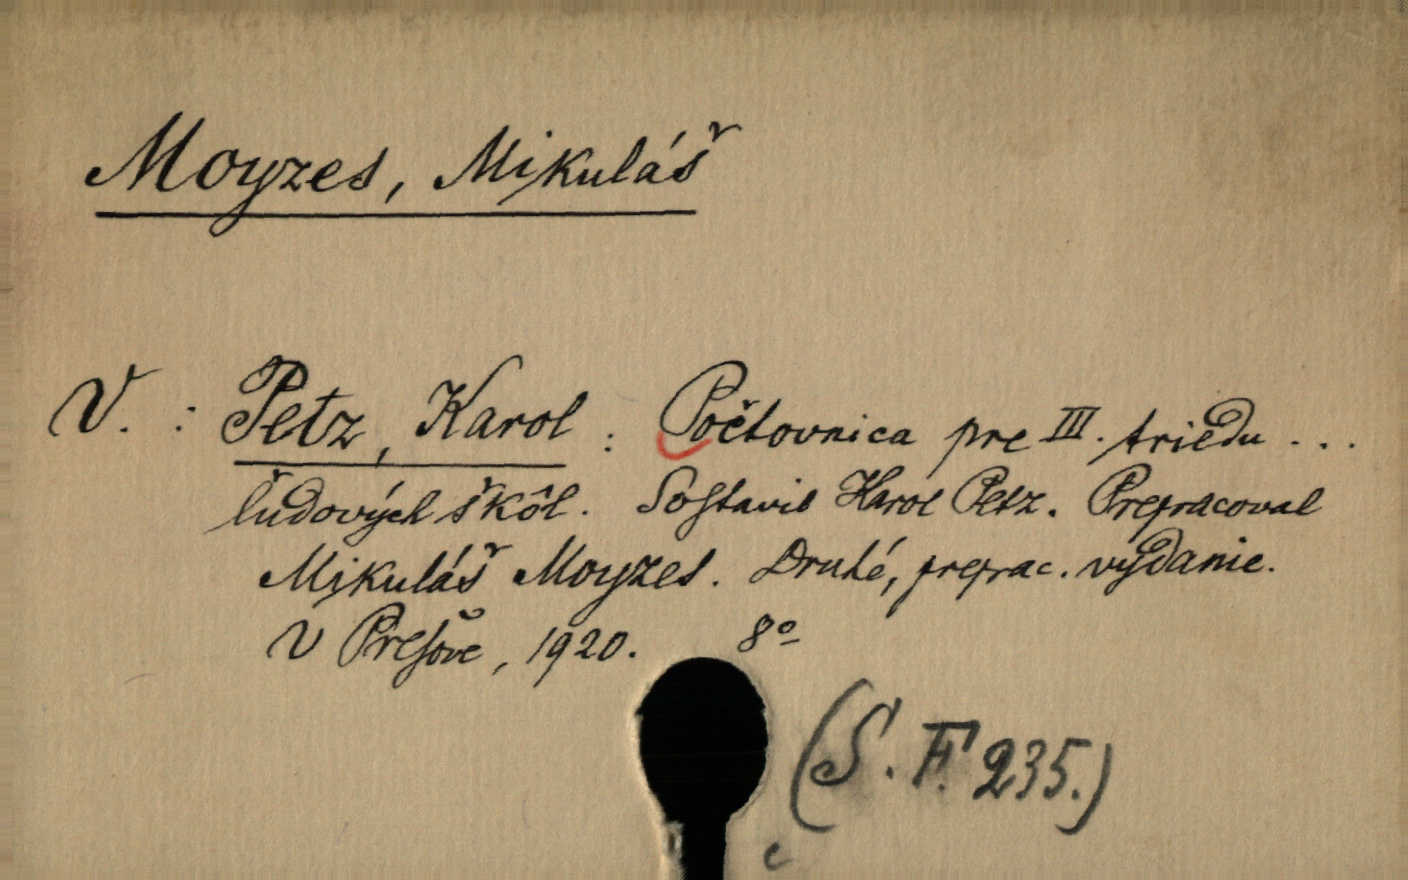 Moyzes, Mikuláš
V. : Petz, Karol : Počtovnica pre III. triedu . . .
ľudových škôl. Sostavil Karol Petz. Prepracoval
Mikuláš Moyzes. Druhé, preprac. vydanie.
V Prešove, 1920. 8º
(S. F. 235.)
c